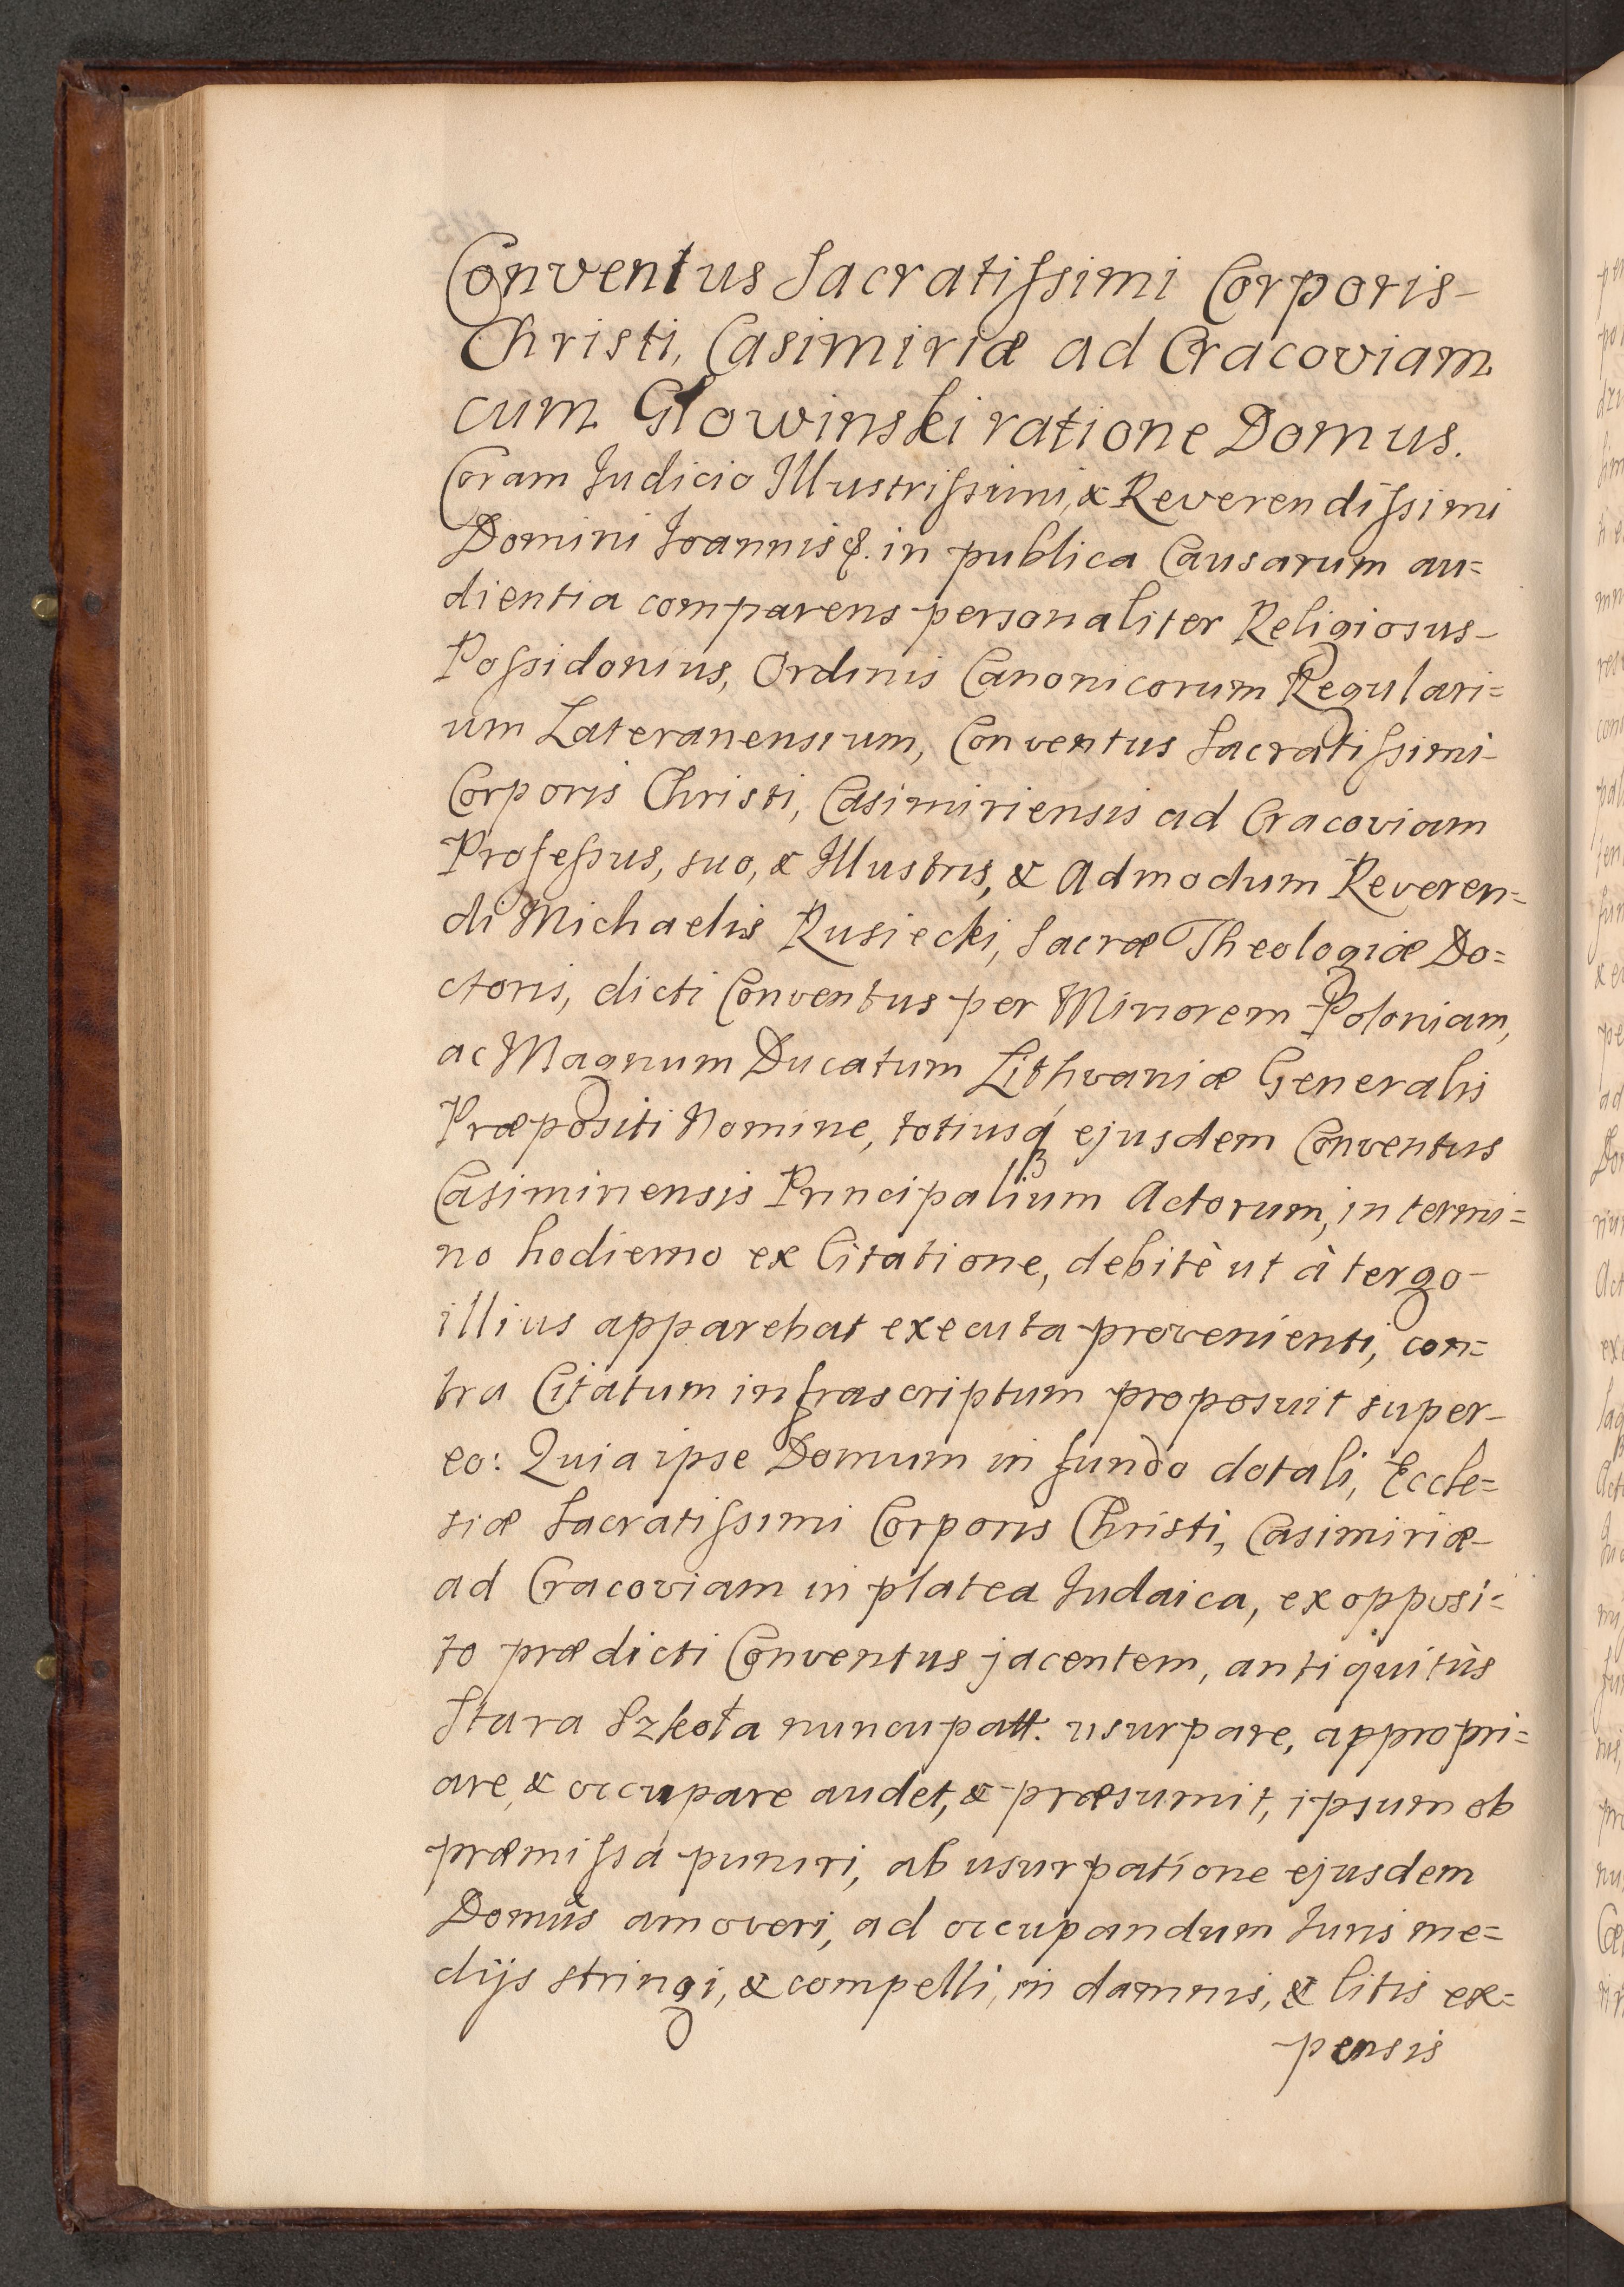 Conventus Sacratissimi Corporis-
Christi, Casimiriæ ad Cracoviam
cum Głowinski ratione Domus.
Coram Judicio Illustrissimi, & Reverendissimi
Domini Joannis &. in publica Causarum au=
dientia comparens personaliter Religiosus-
Possidonius, Ordinis Canonicorum Regulari=
um Lateranensium, Conventus Sacratissimi-
Corporis Christi, Casimiriensis ad Cracoviam
Professus, suo, & Illustris, & Admodum Reveren=
di Michaelis Rusiecki, Sacræ Theologiæ Do=
ctoris, dicti Conventus per Minorem Poloniam,
ac Magnum Ducatum Lithvaniæ Generalis
Præpositi Nomine, totiusq́ꝫ ejusdem Conventus
Casimiriensis Principalium Actorum, in termi=
no hodierno ex Citatione, debitè ut à tergo-
illius apparebat executa provenienti, con=
tra Citatum infrascriptum proposuit super-
eo: Quia ipse Domum in fundo dotali, Eccle=
siæ Sacratissimi Corporis Christi, Casimiriæ-
ad Cracoviam in platea Judaica, ex opposi=
to prædicti Conventus jacentem, antiquitùs
Stara Szkoła nuncupatt. usurpare, appropri=
are, & occupare audet, & præsumit, ipsum ob
præmissa puniri, ab usurpatione ejusdem
Domûs amoveri, ad occupandum Juris me=
dijs stringi, & compelli, in damnis, & litis ex=
pensis